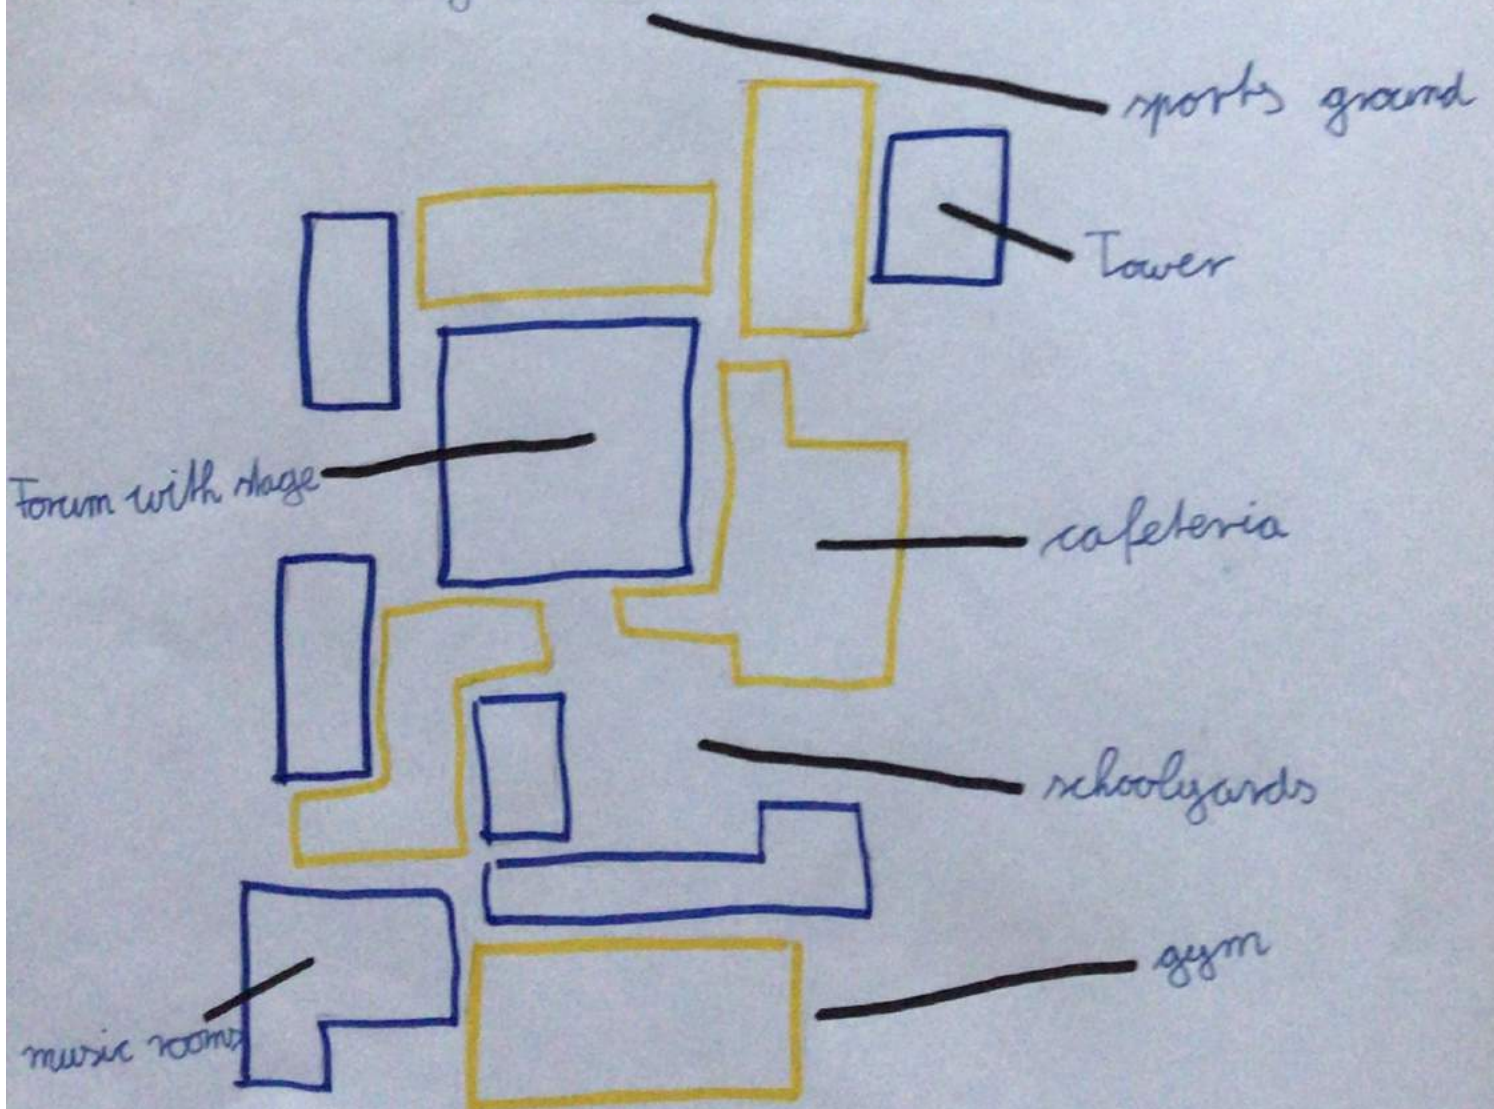 sports ground
Tower
Forum with stage
cafeteria
schoolyards
gym
music rooms